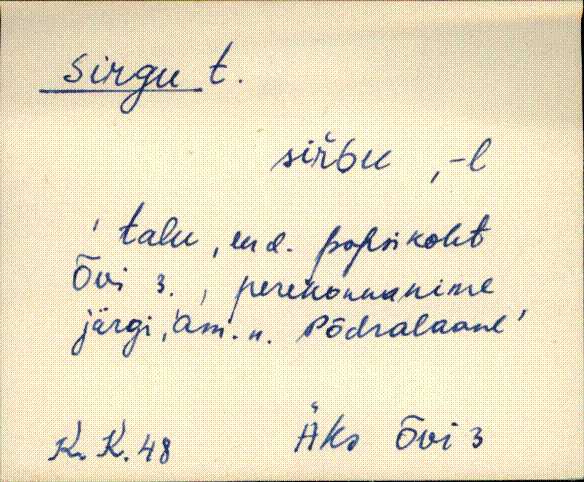 Sirgu t.
sir̆gu , -l
' talu, end. popsikoht
Õvi 3., perekonnanime
järgi, am. n. Põdralaane'
K. K. 48
Äks Õvi 3